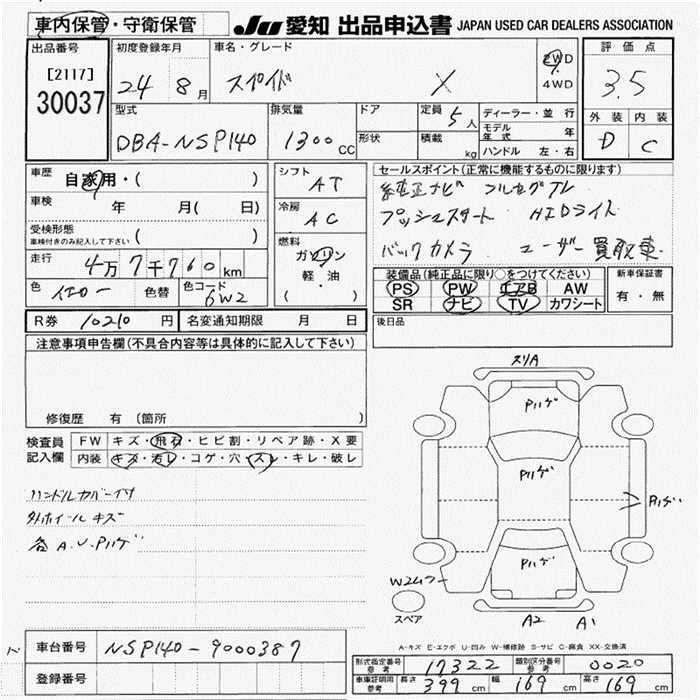 車内保管・守衛保管
JU 愛知 出品申込書 JAPAN USED CAR DEALERS ASSOCIATION
出品番号 初度登録年月 車名・グレード 評価点
[2117] 24 8月 スペイド X 2WD・4WD 3.5
30037
型式 排気量 ドア 定員 5人 ディーラー・並行 外装 内装
DBA-NSP140 1300 CC 形状 積載 kg モデル年式 年 D C
ハンドル 左・右
車歴 自家用・( ) シフト AT セールスポイント(正常に機能するものに限ります)
車検 年 月( 日) 冷房 AC 純正ナビ フルセグTV
受検形態 車検付きのみ記入して下さい ( ) プッシュスタート HIDライト
走行 4万7千760km 燃料 ガソリン 軽・油 ( ) バックカメラ ユーザー買取車
色 イエロー 色替 色コード 6W2 装備品(純正品に限り○をつけてください) 新車保証書
PS PW エアB AW 有・無
SR ナビ TV カワシート
R券 10210円 名変通知期限 月 日 後日品
注意事項申告欄(不具合内容等は具体的に記入して下さい)
修復歴 有 〔箇所 〕
検査員記入欄 FW キズ・飛石・ヒビ割・リペア跡・X要
内装 キズ・汚レ・コゲ・穴・スレ・キレ・破レ
ハンドルカバー付
外ホイールキズ
各A.U.Pハゲ
スリA
Pハゲ
Pハゲ
Pハゲ
Pハゲ
スペア A2 A1
A-キズ E-エクボ U-凹み W-補修跡 S-サビ C-腐食 XX-交換済
車台番号 NSP140-9000387
登録番号
形式指定番号 参考 17322 類別区分番号 参考 0020
車庫証明用 参考 長さ 399cm 幅 169cm 高さ 169cm